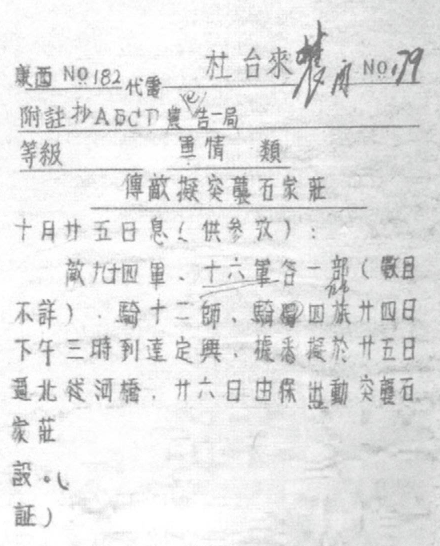 杜台來 No 179
廣西 No 182 代電
附註抄ABCD 告一局
等級 軍情 類
傳敵擬突襲石家莊
十月廿五日息(供參攷):
敵九十四軍、十六軍各一部(數目
不詳)、騎十二師、騎四旅廿四日
下午三時到達定興、據悉擬於廿五日
過北 河橋、廿六日由保出動突襲石
家莊
設。
証)